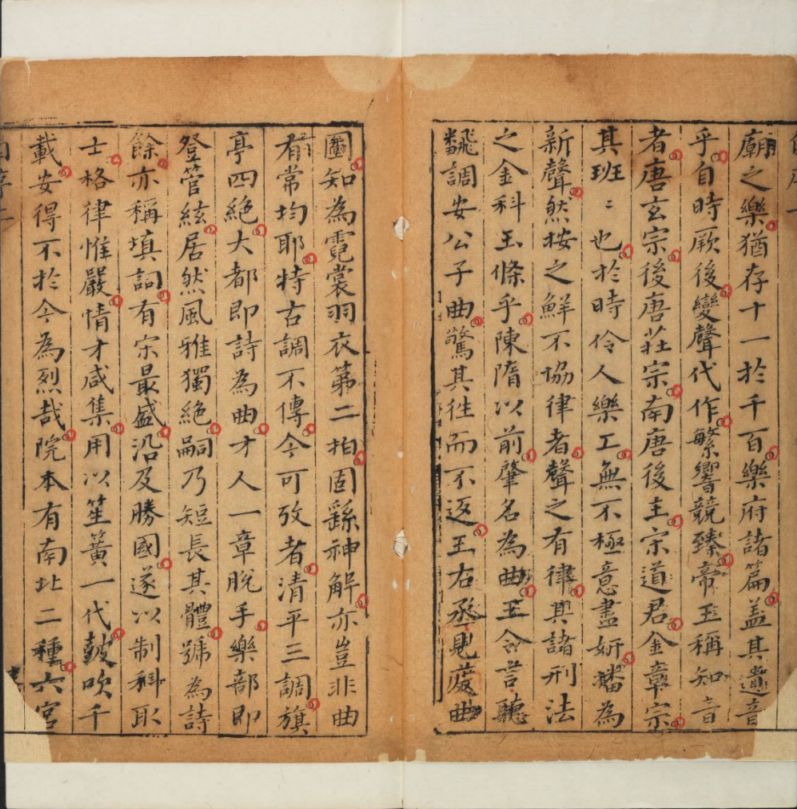 廟之樂猶存十一於千百樂府諸篇蓋其遺音
乎自時厥後變聲代作繁響競臻帝王稱知音
者唐玄宗後唐莊宗南唐後主宋道君金章宗
其班班也於時伶人樂工無不極意盡妍播為
新聲然按之鮮不協律者聲之有律其諸刑法
之金科玉條乎陳隋以前肇名為曲王令言聽
翻調安公子曲驚其徃而不返王右丞見度曲
圖知為霓裳羽衣第二拍固繇神解亦豈非曲
有常均耶特古調不傳今可攷者清平三調旗
亭四絕大都即詩為曲才人一章脫手樂部即
登管絃居然風雅獨絕嗣乃短長其體號為詩
餘亦稱填詞有宋最盛沿及勝國遂以制科取
士格律惟嚴情才咸集用以笙簧一代鼓吹千
載安得不於今為烈哉院本有南北二種六宮